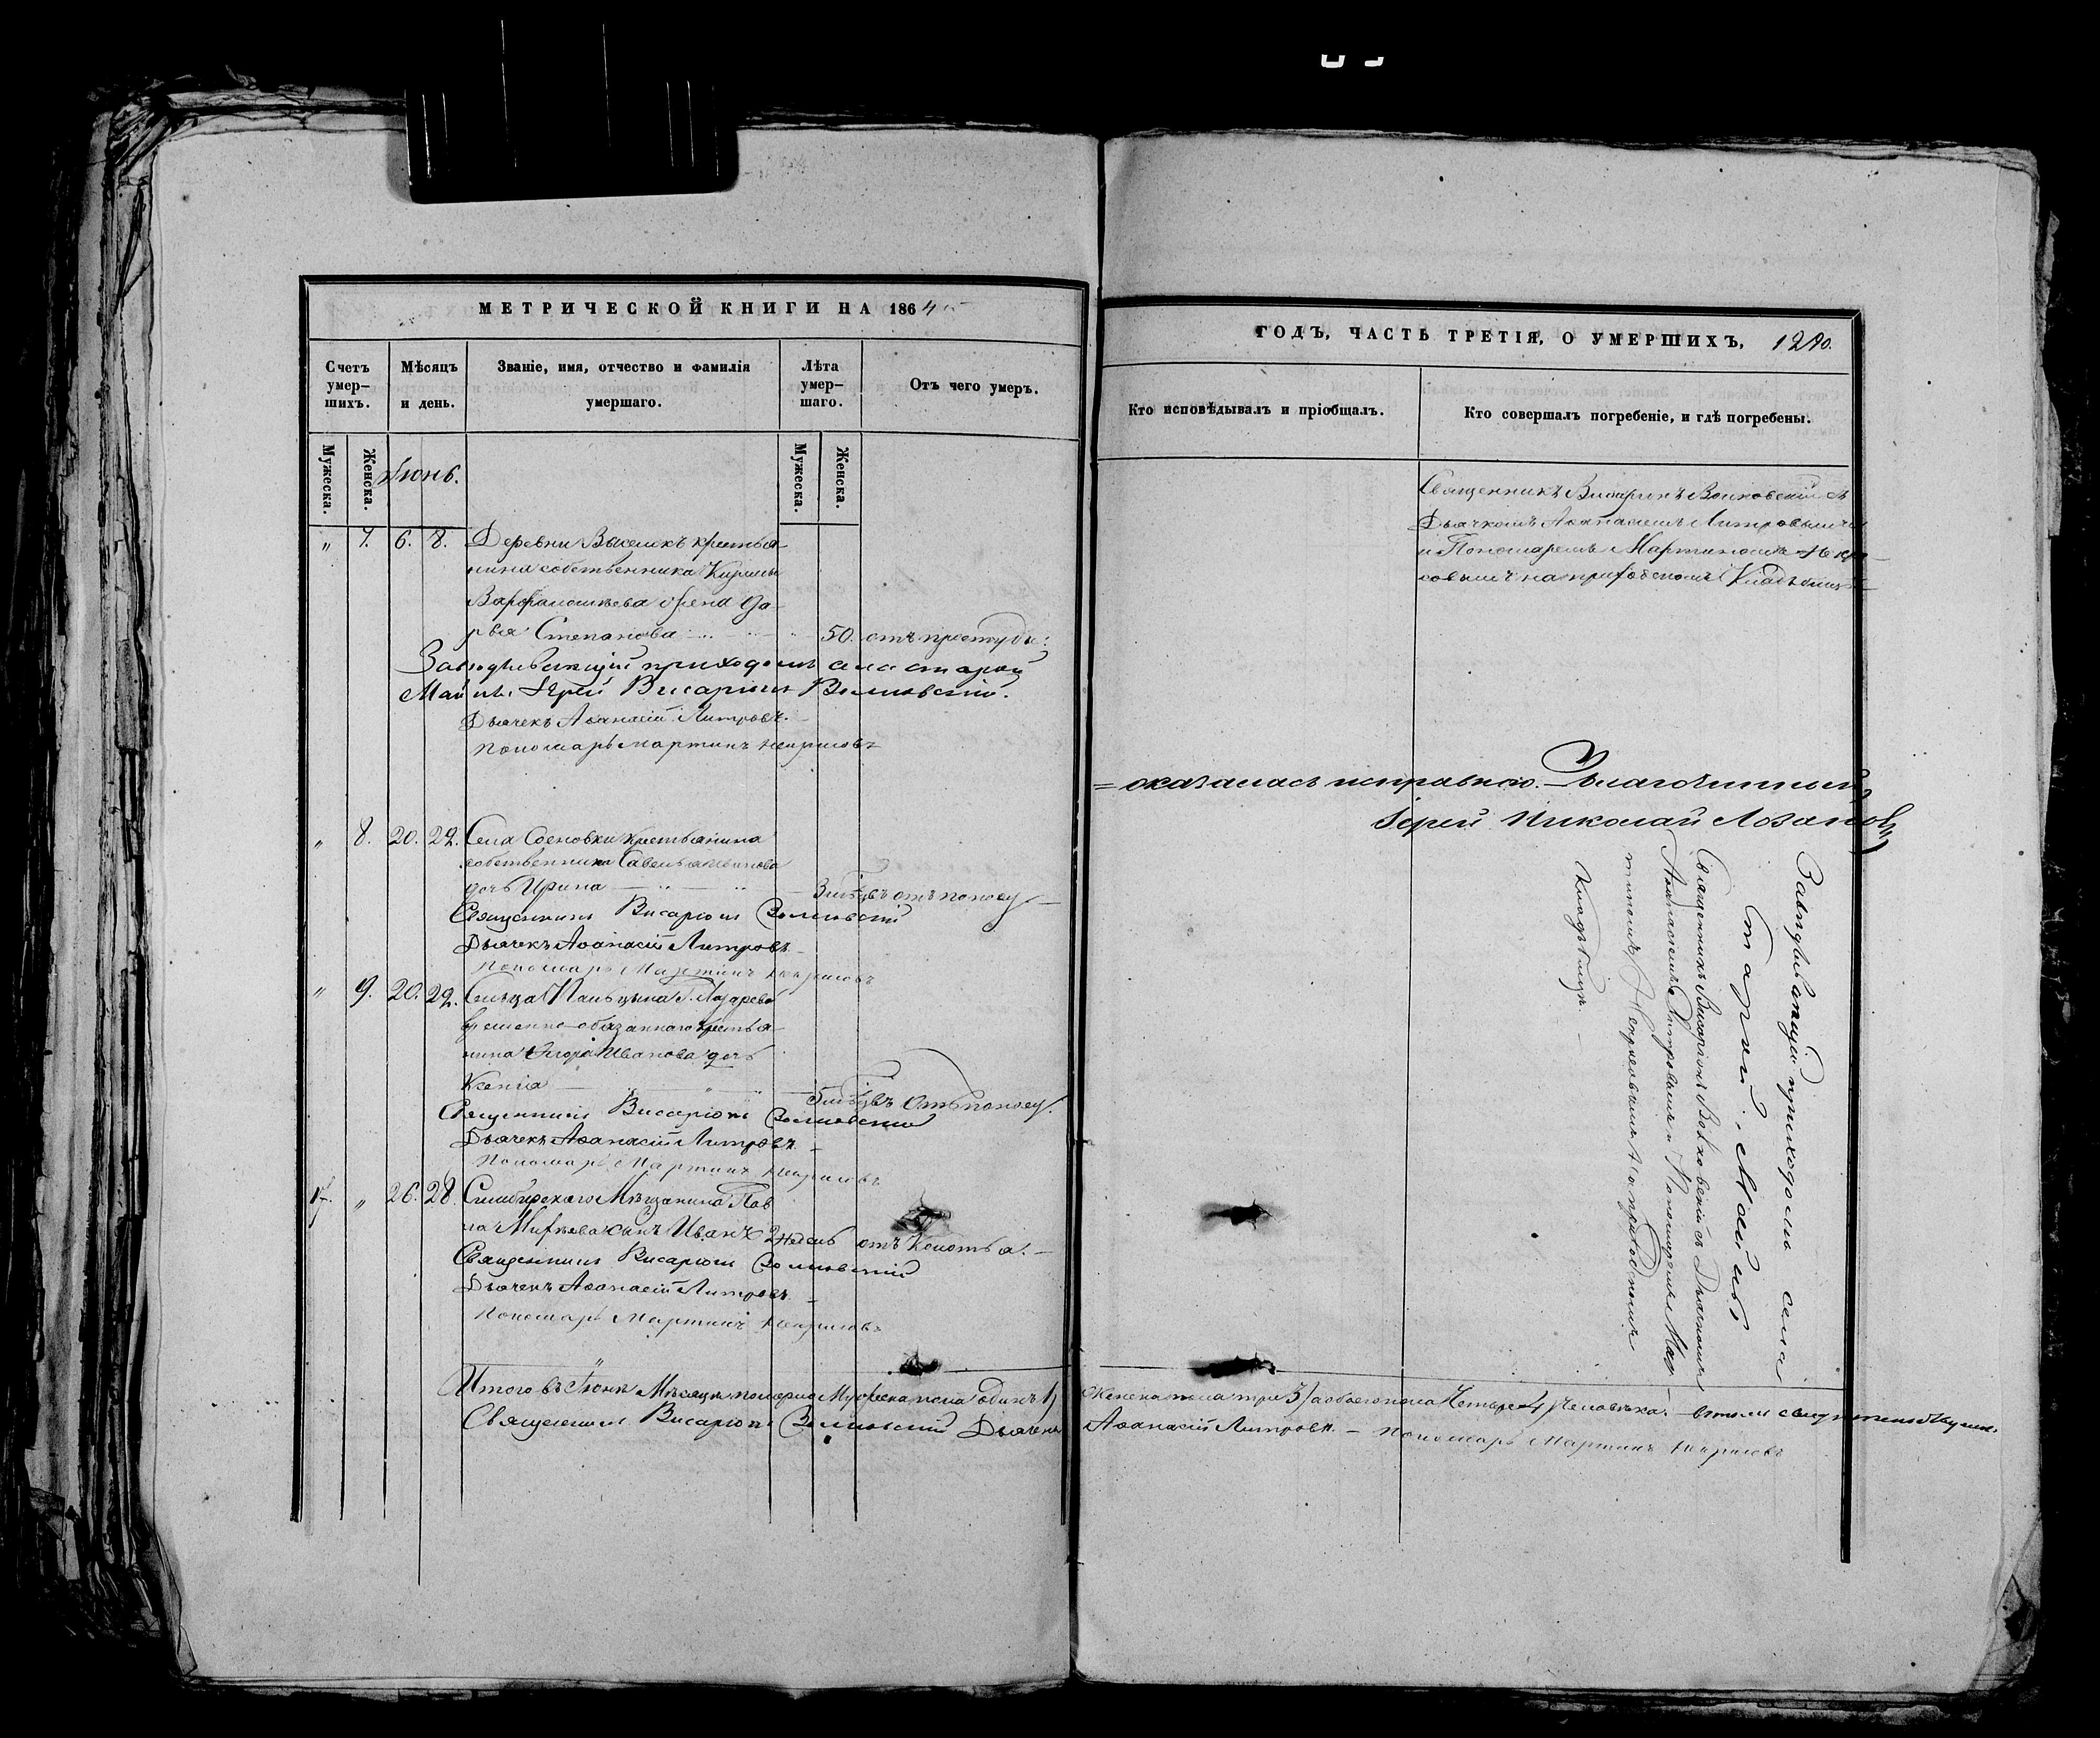 МЕТРИЧЕСКОЙ КНИГИ НА 1864
Счетъ умер-шихъ.
Мѣсяцъ и день.
Званіе, имя, отчество и фамилія умершаго.
Лѣта умер-шаго.
Отъ чего умеръ.
Мужеска.
Женска.
Іюнь.
Мужеска.
Женска.
" 7. 6. 8. Деревни Выселокъ крестья-
нина собственника Кирилы
Варфаламѣева жена Да-
рья Степанова 50. отъ простуды.
Завѣдывающій приходомъ села старой
Майны Іерей Висаріонъ Волковскій.
Дьячекъ Аѳанасій Литровъ.
Пономарь Мартинъ Некрасовъ
" 8. 20. 22. Села Сосновки крестьянина
собственника Савелья Иванова
дочь Ирина отъ поносу
Священникъ Висаріонъ Волковскій
Дьячекъ Аѳанасій Литровъ.
Пономарь Мартинъ Некрасовъ
" 9. 20. 22. Сельца Г. Лазарева
временно-обязаннаго крестья-
нина Егора Иванова дочь
Ксенія отъ поносу.
Священникъ Висаріонъ Волковскій
Дьячекъ Аѳанасій Литровъ.
Пономарь Мартинъ Некрасовъ
" 26. 28. Симбирскаго Мѣщанина Пав
ла Михѣева сынъ Иванъ 2 недель отъ
Священникъ Висаріонъ Волковскій
Дьячекъ Аѳанасій Литровъ.
Пономарь Мартинъ Некрасовъ
Итого въ Іюнѣ Мѣсяцѣ померло Мужеска пола одинъ 1)
Священникъ Висаріонъ Волковскій Дьячекъ
ГОДЪ, ЧАСТЬ ТРЕТІЯ, О УМЕРШИХЪ,
Кто исповѣдывалъ и пріобщалъ.
Кто совершалъ погребеніе, и гдѣ погребены.
Священникъ Висаріонъ Волковскій съ
Дьячкомъ Аѳанасіемъ Литровымъ
и Пономаремъ Мартиномъ Некра-
совымъ на приходскомъ Кладбищѣ
= оказалась исправною. Благочинный,
Іерей Николай Лозановъ
Завѣдывающій приходомъ села
Старой Майны
Священникъ Висаріонъ Волковскій съ Дьячкомъ
Аѳанасіемъ Литровымъ и Пономаремъ Мар
тиномъ Некрасовымъ на приходскомъ
Кладбищѣ.
Женска пола три 3) а обоего пола Четыре 4) Человѣка.
Аѳанасій Литровъ. - Пономарь Мартинъ Некрасовъ